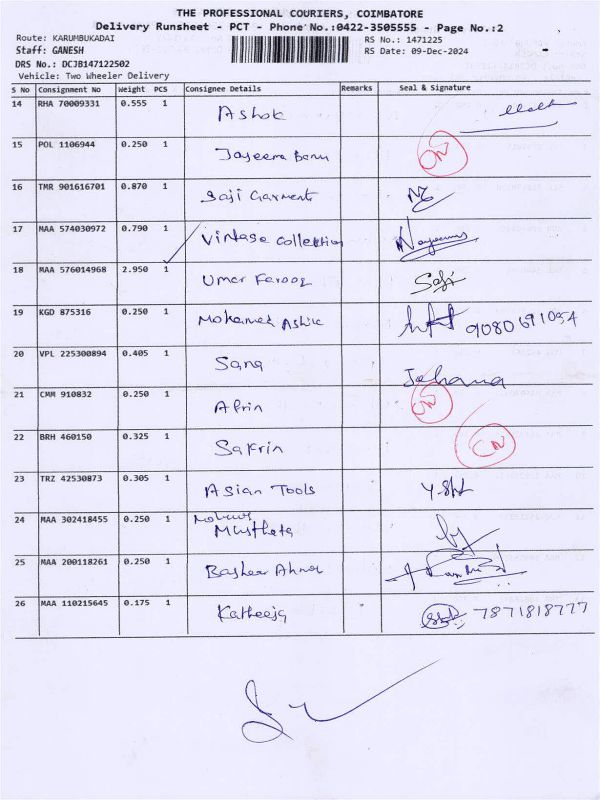 THE PROFESSIONAL COURIERS, COIMBATORE
Delivery Runsheet - PCT - Phone No.:0422-3505555 - Page No.:2
Route: KARUMBUKADAI RS No.: 1471225
Staff: GANESH RS Date: 09-Dec-2024
DRS No.: DCJB147122502
Vehicle: Two Wheeler Delivery
S No Consignment No Weight PCS Consignee Details Remarks Seal & Signature
14 RHA 70009331 0.555 1 Ashok
15 POL 1106944 0.250 1 Jaseera Banu CN
16 TMR 901616701 0.870 1 Saji Garments
17 MAA 574030972 0.790 1 Vintage Collection Nayeems
18 MAA 576014968 2.950 1 Umar Farooq Safi
19 KGD 875316 0.250 1 Mohamed Ashik 9080691094
20 VPL 225300894 0.405 1 Sana Jehana
21 CMM 910832 0.250 1 Afrin CN
22 BRH 460150 0.325 1 Safrin CN
23 TRZ 42530873 0.305 1 Asian Tools
24 MAA 302418455 0.250 1 Musthafa
25 MAA 200118261 0.250 1 Basheer Ahmed
26 MAA 110215645 0.175 1 Katheeja 7871818777